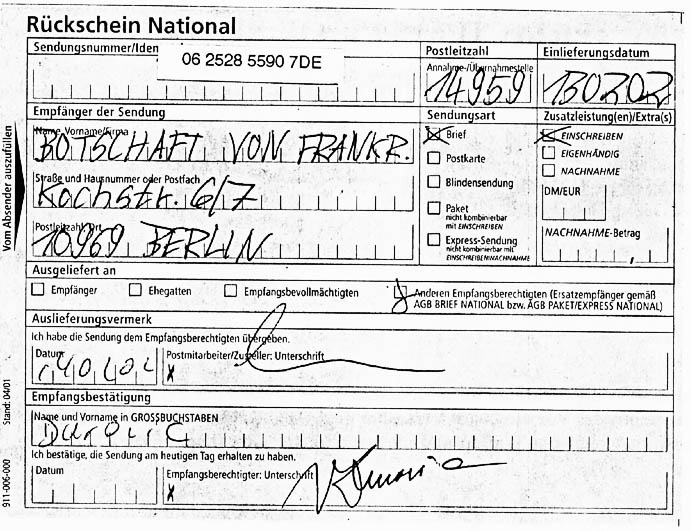 Rückschein National
Sendungsnummer/Iden
06 2528 5590 7DE
Postleitzahl
Annahme-/Übernahmestelle
14959
Einlieferungsdatum
130202
Empfänger der Sendung
Name, Vorname/Firma
BOTSCHAFT VON FRANKR.
Straße und Hausnummer oder Postfach
Kochstr. 6/7
Postleitzahl, Ort
10969 BERLIN
Sendungsart
Brief
Postkarte
Blindensendung
Paket
nicht kombinierbar
mit EINSCHREIBEN
Express-Sendung
nicht kombinierbar mit
EINSCHREIBEN/NACHNAHME
Zusatzleistung(en)/Extra(s)
EINSCHREIBEN
EIGENHÄNDIG
NACHNAHME
DM/EUR
NACHNAHME-Betrag
Vom Absender auszufüllen
Ausgeliefert an
Empfänger
Ehegatten
Empfangsbevollmächtigten
Anderen Empfangsberechtigten (Ersatzempfänger gemäß
AGB BRIEF NATIONAL bzw. AGB PAKET/EXPRESS NATIONAL)
Auslieferungsvermerk
Ich habe die Sendung dem Empfangsberechtigten übergeben.
Datum
Postmitarbeiter/Zusteller: Unterschrift
X
Empfangsbestätigung
Name und Vorname in GROSSBUCHSTABEN
Ich bestätige, die Sendung am heutigen Tag erhalten zu haben.
Datum
Empfangsberechtigter: Unterschrift
X
Stand: 04/01
911-006-000